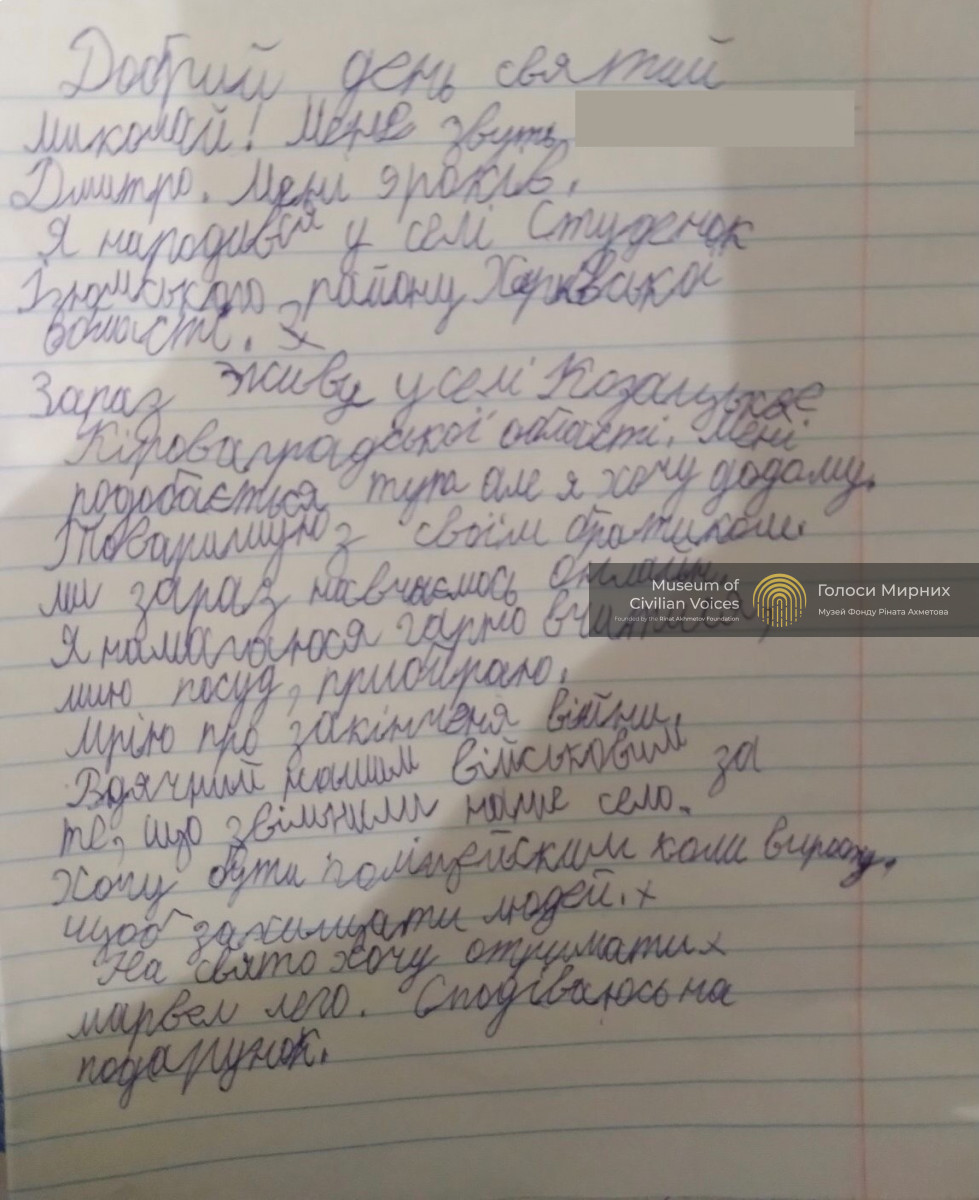 Добрий день святий
миколай! Мене звуть
Дмитро. Мені 9 років.
Я народився у селі Студенок
Ізюмського району Харківської
області. З
Зараз живу у селі Козацьке
Кіровоградської області. Мені
подобається тута але я хочу додому.
Товаришую з своїм братиком
ми зараз навчаємось онлайн.
Museum of
Civilian Voices
Founded by the Rinat Akhmetov Foundation
Голоси Мирних
Музей Фонду Ріната Ахметова
Я намагаюся гарно вчитися,
мию посуд, прибираю.
Мрію про закінченя війни.
Вдячний нашим військовим за
те, що звільнили наше село.
Хочу бути поліцейским коли виросту,
щоб захищати людей. х
На свято хочу отримати х
марвел лего. Сподіваюсь на
подарунок.